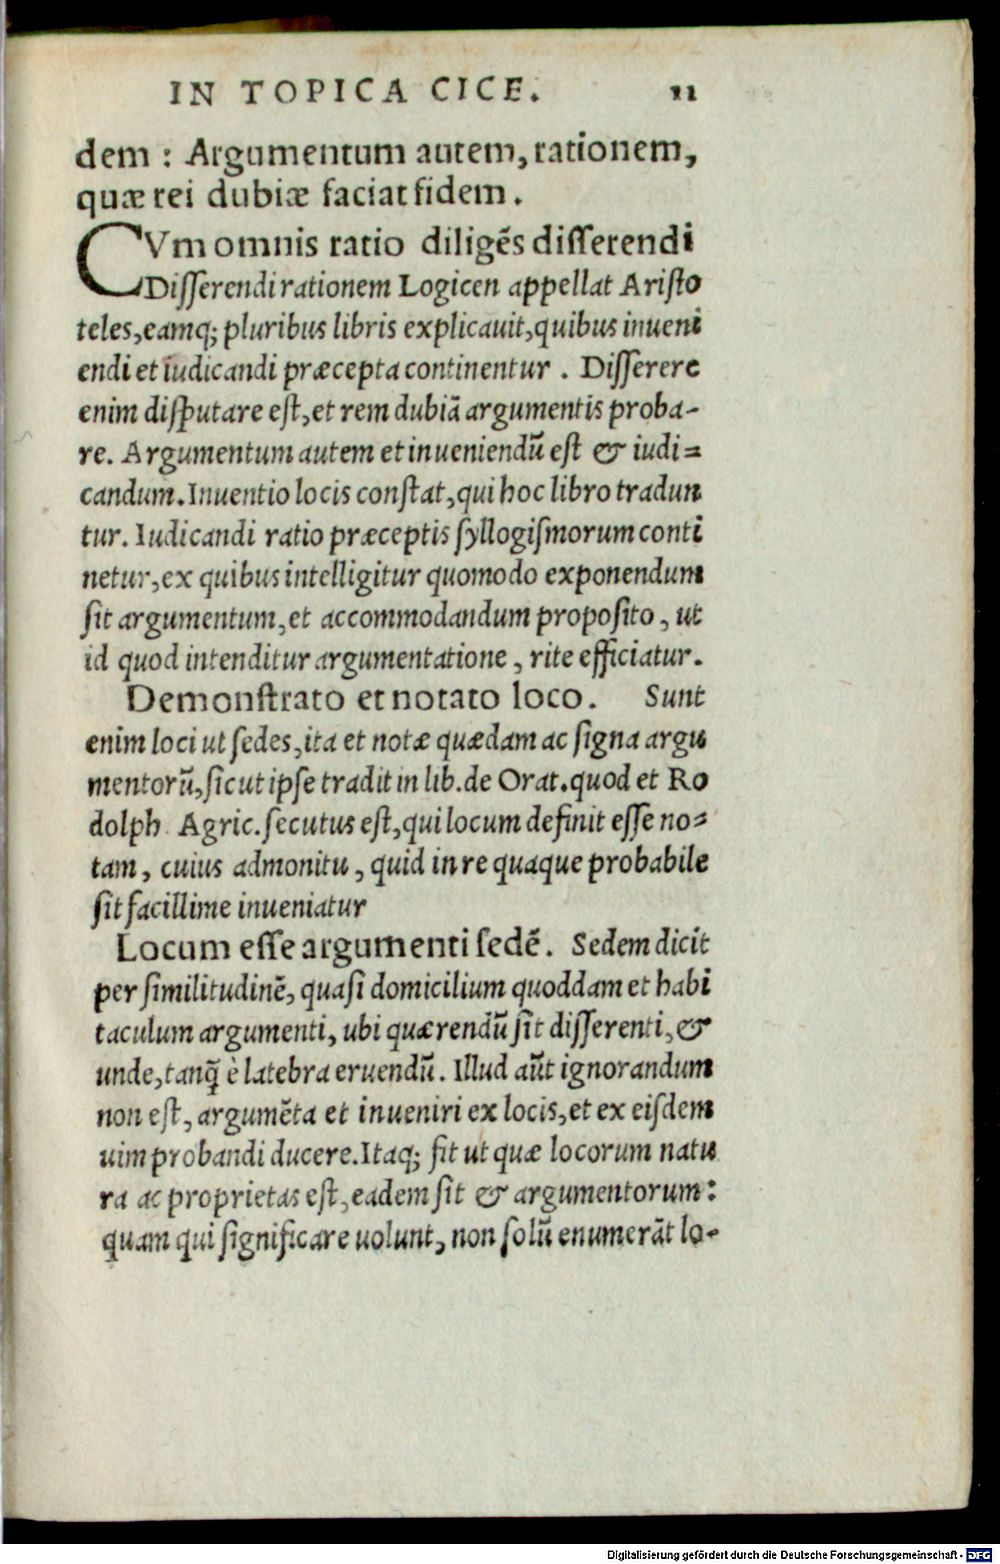 IN TOPICA CICE. 11
dem : Argumentum autem, rationem,
quæ rei dubiæ faciat fidem.
CVm omnis ratio diligẽs disserendi
Disserendi rationem Logicen appellat Aristo
teles, eamq; pluribus libris explicauit, quibus inueni
endi et iudicandi præcepta continentur . Disserere
enim disputare est, et rem dubiã argumentis proba-
re. Argumentum autem et inueniendũ est & iudi=
candum. Inuentio locis constat, qui hoc libro tradun
tur. Iudicandi ratio præceptis syllogismorum conti
netur, ex quibus intelligitur quomodo exponendum
sit argumentum, et accommodandum proposito, ut
id quod intenditur argumentatione, rite efficiatur.
Demonstrato et notato loco. Sunt
enim loci ut sedes, ita et notæ quædam ac signa argu
mentorũ, sicut ipse tradit in lib. de Orat. quod et Ro
dolph Agric. secutus est, qui locum definit esse no=
tam, cuius admonitu, quid in re quaque probabile
sit facillime inueniatur
Locum esse argumenti sedẽ. Sedem dicit
per similitudinẽ, quasi domicilium quoddam et habi
taculum argumenti, ubi quærendũ sit disserenti, &
unde, tanq̃ è latebra eruendũ. Illud aũt ignorandum
non est, argumẽta et inueniri ex locis, et ex eisdem
uim probandi ducere. Itaq; fit ut quæ locorum natu
ra ac proprietas est, eadem sit & argumentorum:
quam qui significare uolunt, non solũ enumerãt lo-
Digitalisierung gefördert durch die Deutsche Forschungsgemeinschaft - DFG